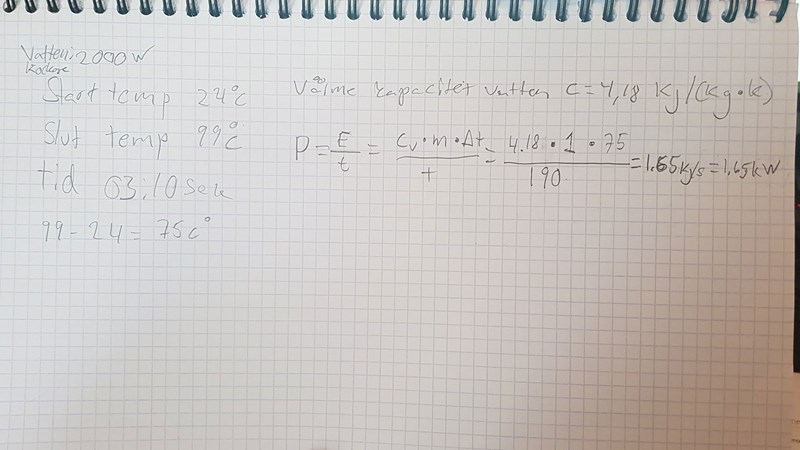 Vatten: 2000W
kokare
Start temp 24°C
Slut temp 99°C
tid 03:10 Sek
99 - 24 = 75C°
Värme kapacitet vatten C = 4,18 Kj/(Kg·K)
P = E/t = Cv·m·Δt/t = 4.18·1·75/190 = 1.65Kj/s = 1,65kW